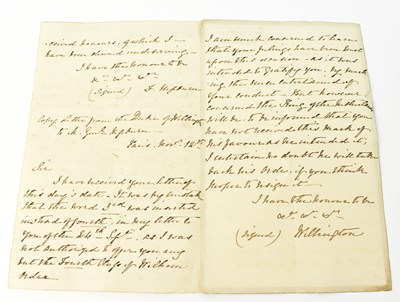 ceived honours, of which I
have been deemed undeserving -
I have the honour to be
&c. &c. &c.
(signed) F. Hepburn
Copy Letter from the Duke of Wellington
to M. Genl. Hepburn
Paris. Novr. 12th.
Sir
I have received your letter of
this day's date. It was by mistake
that the word 3rd was inserted
instead of fourth, in my letter to
you of the 24th Septr. as I was
not authorized to offer you any
but the Fourth Class of Wilhem
order
I am much concerned to learn
that your feelings have been hurt
upon this occasion - as it was
intended to gratify you, by mark
ing the sense entertained of
your conduct - But however
concerned the King of the Netherlands
will be to be informed that you
have not received this Mark of
His favour as He intended it;
I entertain no doubt he will take
back His Order, if you think
proper to resign it.
I have the honour to be
&c. &c. &c.
(signed) Wellington